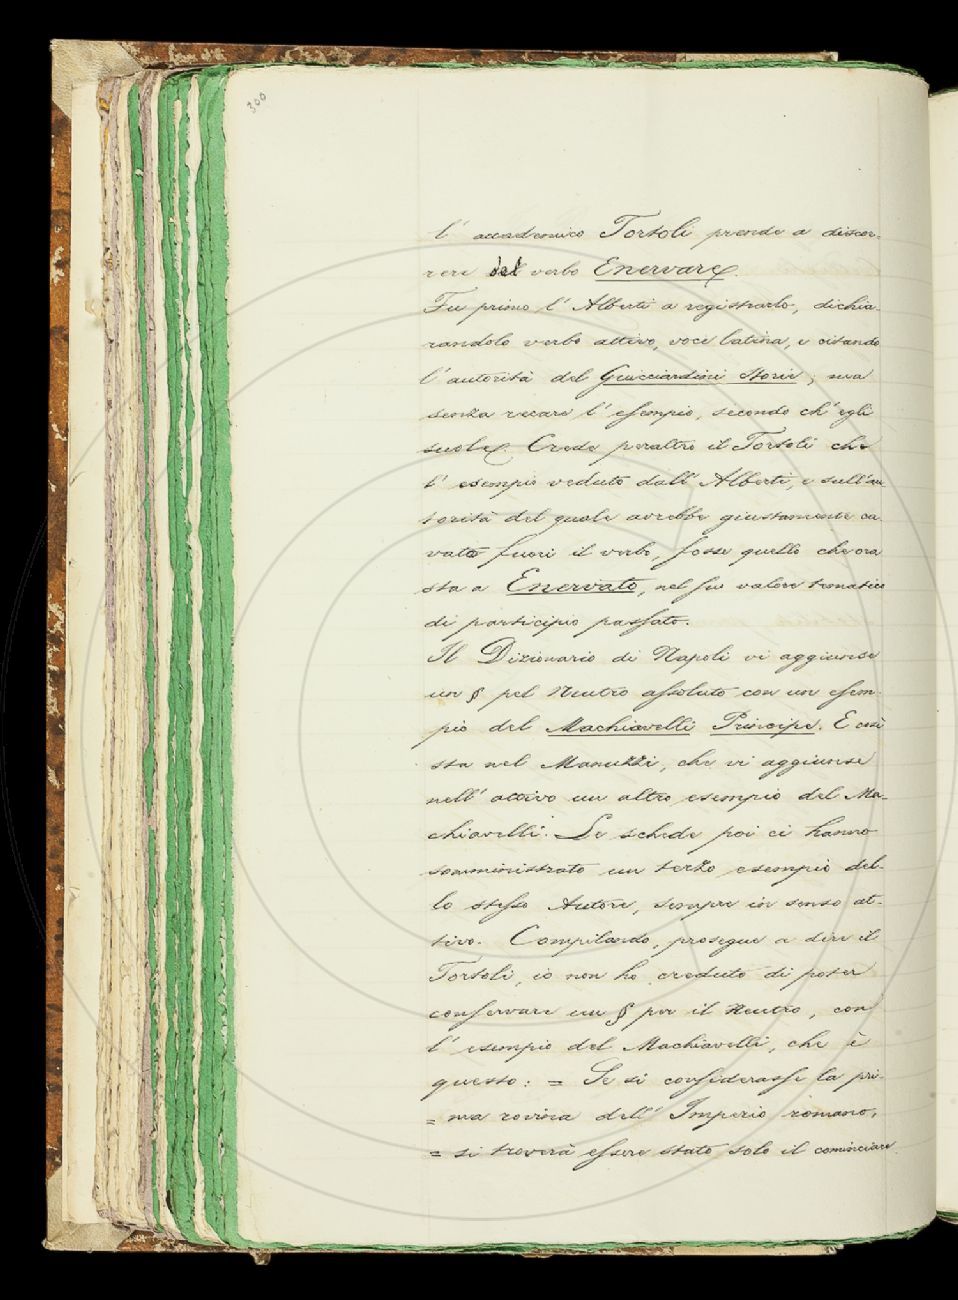 300
l'accademico Tortoli prende a discor-
rere del verbo Enervare.
Fu primo l'Alberti a registrarlo, dichia-
randolo verbo attivo, voce latina, e citando
l'autorità del Guicciardini Storie; ma
senza recare l'esempio, secondo ch'egli
suole. Crede peraltro il Tortoli che
l'esempio veduto dall'Alberti, e sull'au
torità del quale avrebbe giustamente ca
vato fuori il verbo, fosse quello che ora
sta a Enervato, nel suo valore tematico
di participio passato.
Il Dizionario di Napoli vi aggiunse
un § pel Neutro assoluto con un esem-
pio del Machiavelli Principe. E così
sta nel Manuzzi, che vi aggiunse
nell'attivo un altro esempio del Ma-
chiavelli. Le schede poi ci hanno
somministrato un terzo esempio del-
lo stesso Autore, sempre in senso at-
tivo. Compilando, prosegue a dire il
Tortoli, io non ho creduto di poter
conservare un § per il Neutro, con
l'esempio del Machiavelli, che è
questo: = Se si considerasse la pri-
= ma rovina dell'Imperio romano,
= si troverà essere stato solo il cominciare